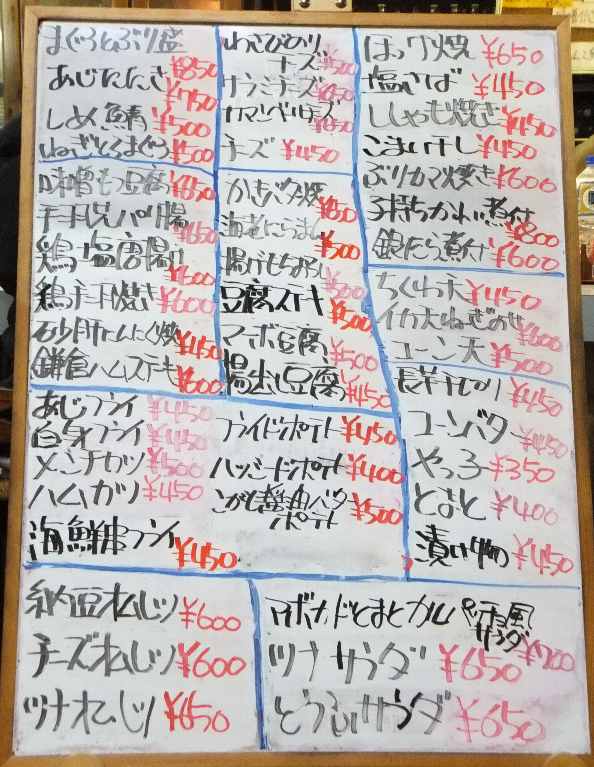 まぐろとぶり盛 ¥850
あじたたき ¥750
しめ鯖 ¥500
ねぎとろまぐろ ¥500
わさびのり
チーズ ¥500
サラミチーズ ¥650
カマンベールチーズ ¥650
チーズ ¥450
ほっけ焼 ¥650
塩さば ¥450
ししゃも焼き ¥450
こまい干し ¥450
ぶりカマ焼き ¥600
子持ちかれい煮付 ¥800
銀だら煮付 ¥600
味噌もつ豆腐 ¥650
¥650
鶏塩唐揚げ ¥600
鶏チーズ焼き ¥600
砂肝にんにく焼 ¥450
鎌倉ハムステーキ ¥600
かきバター焼 ¥650
海老にらまん ¥500
揚げもちおろし ¥500
豆腐ステーキ ¥500
マーボ豆腐 ¥500
揚出し豆腐 ¥450
ちくわ天 ¥450
イカ天ねぎおろし ¥600
コーン天 ¥500
あじフライ ¥450
白身フライ ¥450
メンチカツ ¥500
ハムカツ ¥450
海鮮串フライ ¥450
フライドポテト ¥450
ハッシュドポテト ¥400
こがし醤油バター
ポテト ¥500
長芋千切り ¥450
コーンバター ¥450
やっこ ¥350
とまと ¥400
漬け物 ¥450
納豆オムレツ ¥600
チーズオムレツ ¥600
ツナオムレツ ¥650
アボカドとまとカルパッチョ風
サラダ ¥700
ツナサラダ ¥650
とうふサラダ ¥650